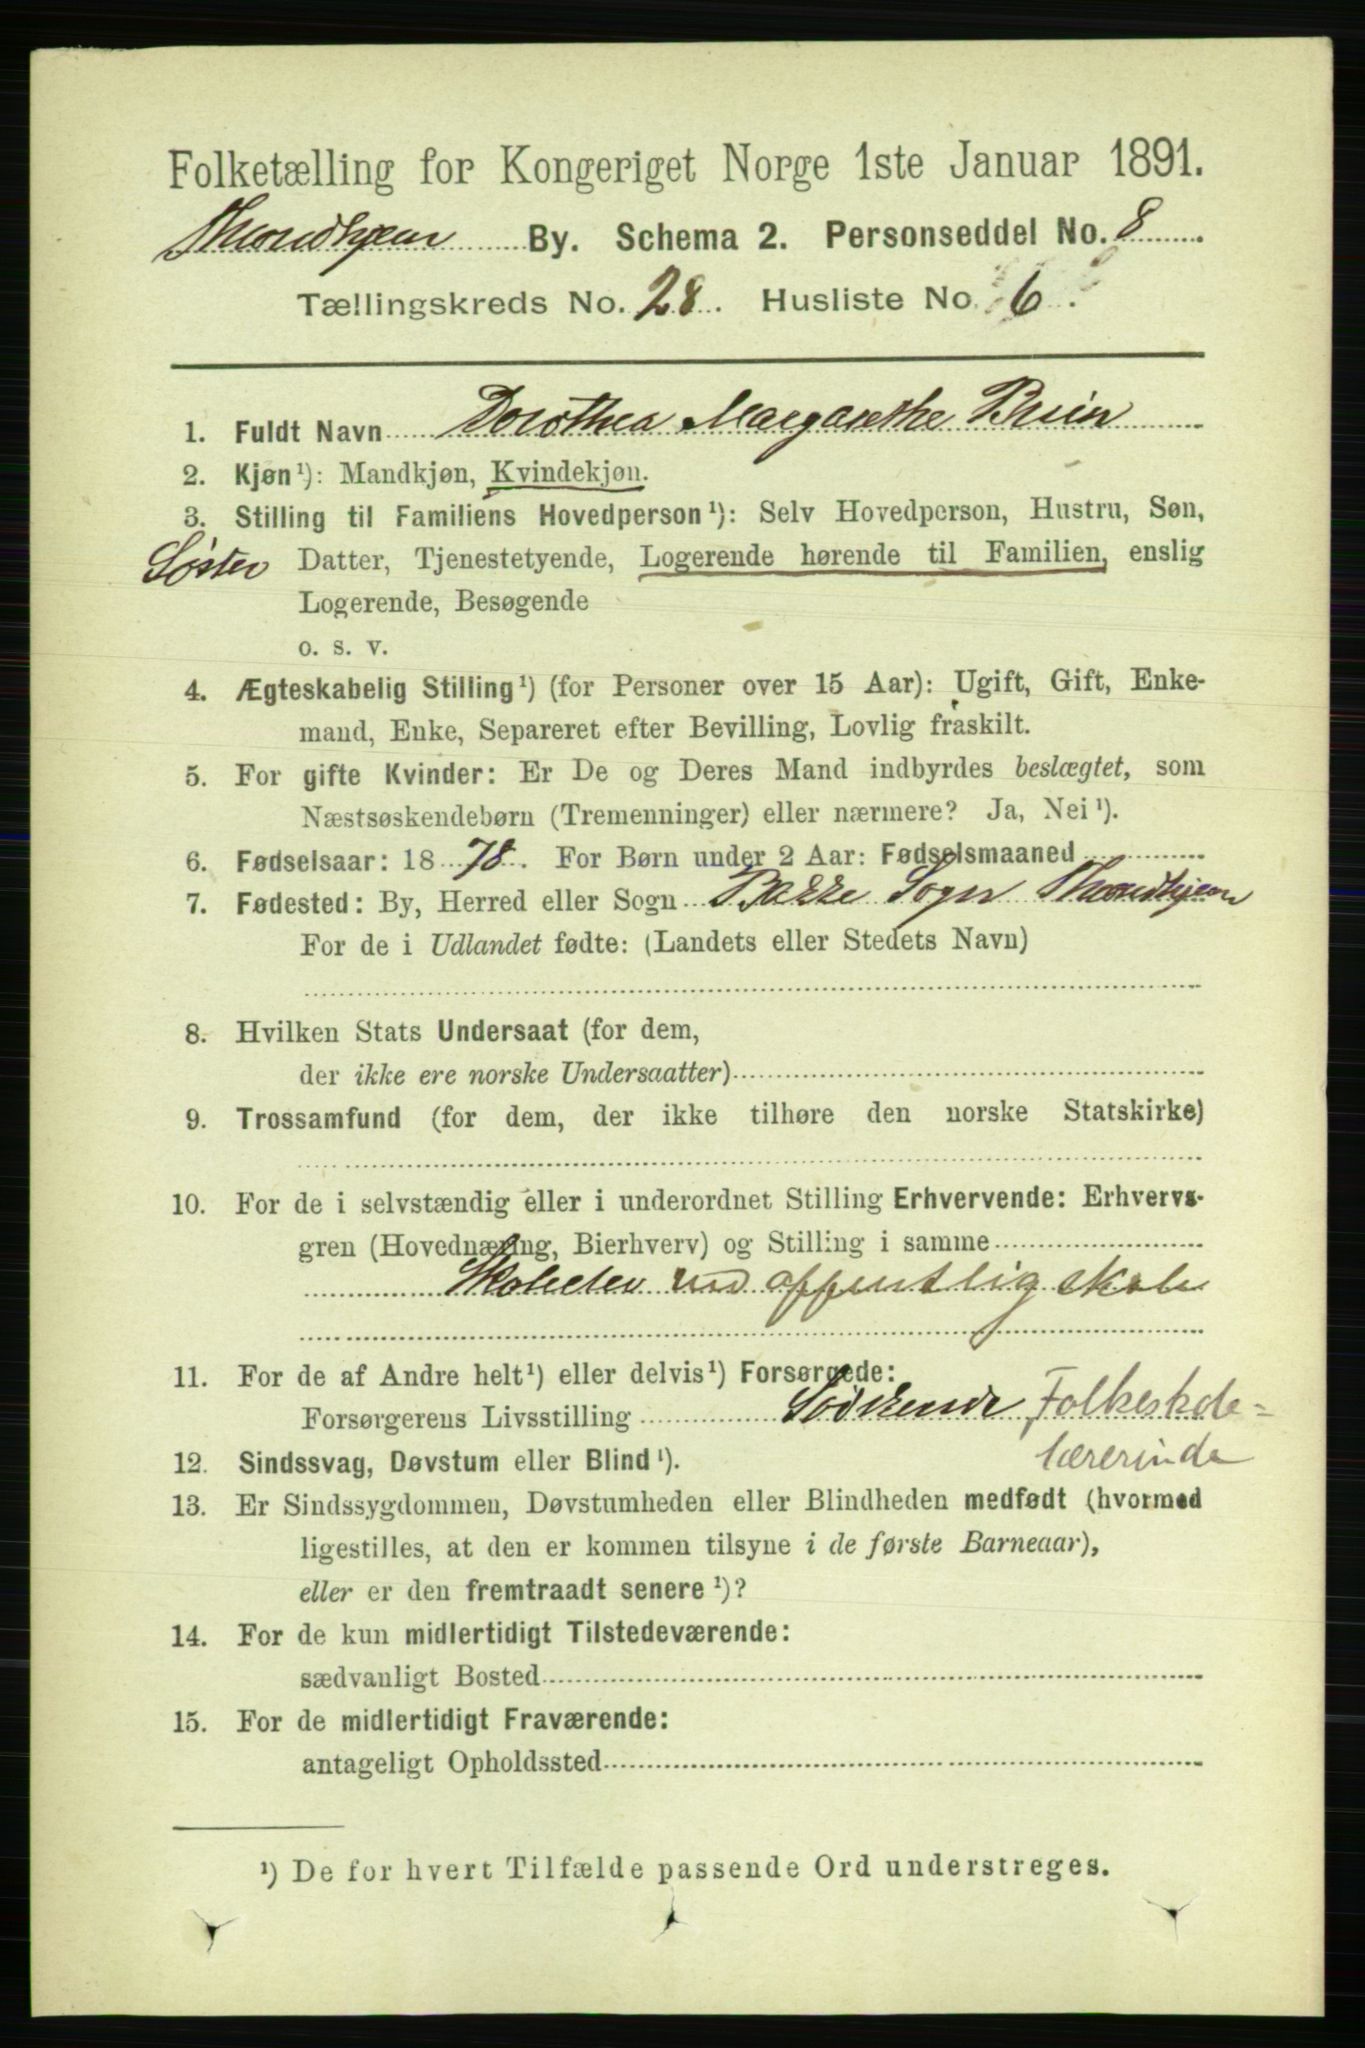 Folketælling for Kongeriget Norge 1ste Januar 1891.
Throndhjem By. Schema 2. Personseddel No. 8
Tællingskreds No. 28. Husliste No. 6.
1. Fuldt Navn Dorothea Margarethe Bruun
2. Kjøn¹): Mandkjøn, Kvindekjøn.
3. Stilling til Familiens Hovedperson¹): Selv Hovedperson, Hustru, Søn,
Søster Datter, Tjenestetyende, Logerende hørende til Familien, enslig
Logerende, Besøgende
o. s. v.
4. Ægteskabelig Stilling¹) (for Personer over 15 Aar): Ugift, Gift, Enke-
mand, Enke, Separeret efter Bevilling, Lovlig fraskilt.
5. For gifte Kvinder: Er De og Deres Mand indbyrdes beslægtet, som
Næstsøskendebørn (Tremenninger) eller nærmere? Ja, Nei¹).
6. Fødselsaar: 1878. For Børn under 2 Aar: Fødselsmaaned
7. Fødested: By, Herred eller Sogn Bakke Sogn Throndhjem
For de i Udlandet fødte: (Landets eller Stedets Navn)
8. Hvilken Stats Undersaat (for dem,
der ikke ere norske Undersaatter)
9. Trossamfund (for dem, der ikke tilhøre den norske Statskirke)
10. For de i selvstændig eller i underordnet Stilling Erhvervende: Erhvervs-
gren (Hovednæring, Bierhverv) og Stilling i samme
Skoleelev ved offentlig skole
11. For de af Andre helt¹) eller delvis¹) Forsørgede:
Forsørgerens Livsstilling Södskende Folkeskole-
lærerinde
12. Sindssvag, Døvstum eller Blind¹).
13. Er Sindssygdommen, Døvstumheden eller Blindheden medfødt (hvormed
ligestilles, at den er kommen tilsyne i de første Barneaar),
eller er den fremtraadt senere¹)?
14. For de kun midlertidigt Tilstedeværende:
sædvanligt Bosted
15. For de midlertidigt Fraværende:
antageligt Opholdssted
¹) De for hvert Tilfælde passende Ord understreges.